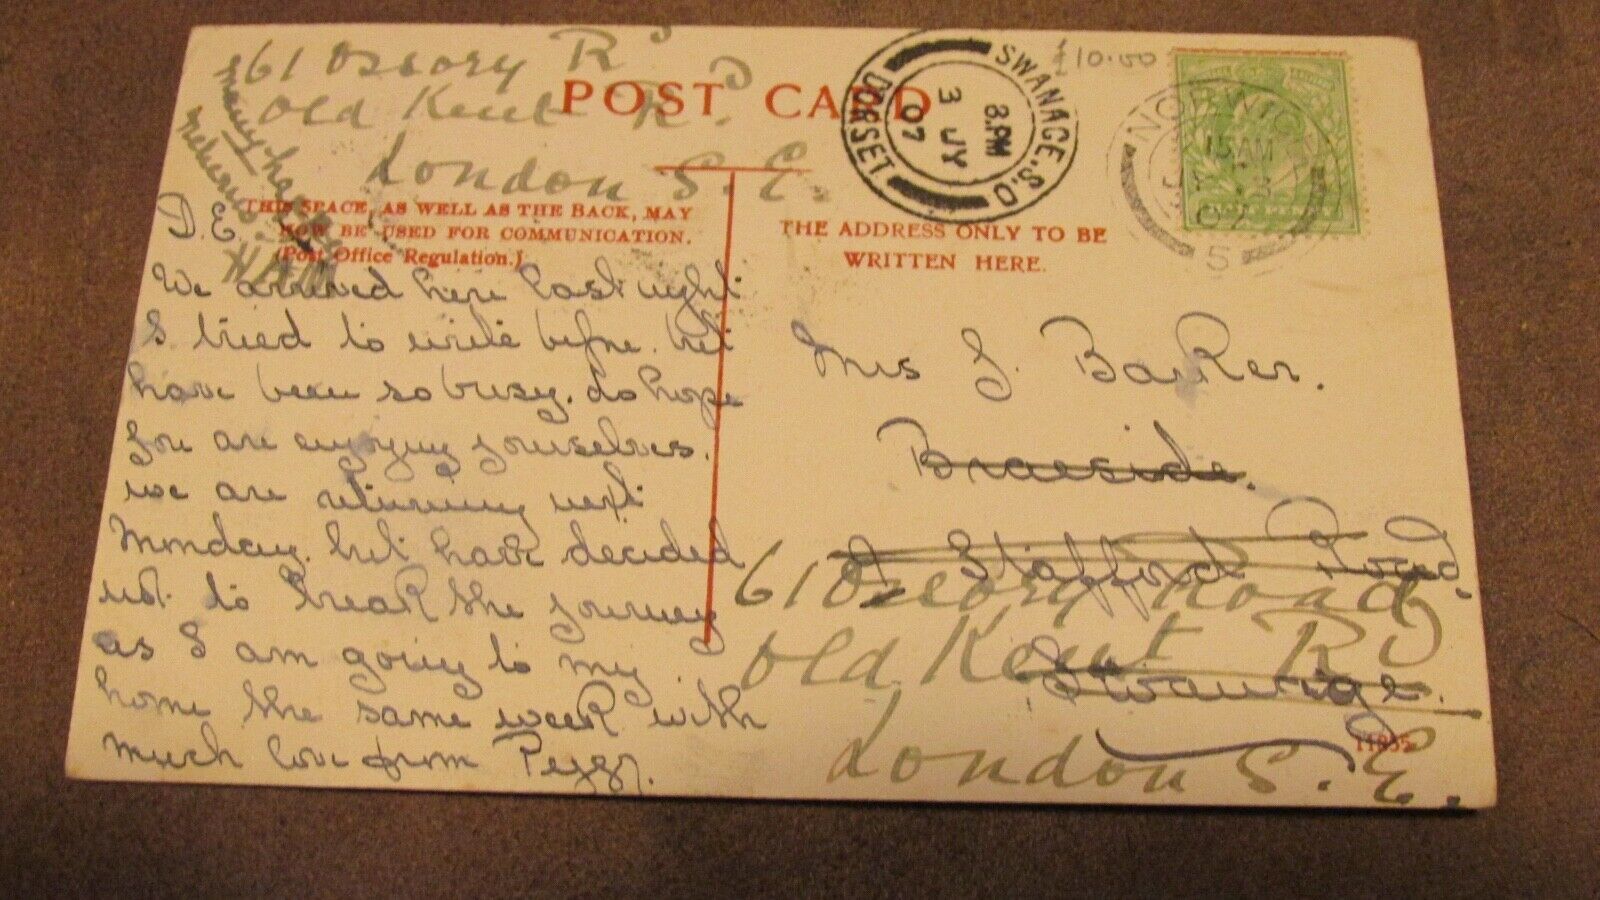 61 Ossory Rd
Old Kent Rd
London S. E.
many happy
returns
H.A.M
POST CARD
THIS SPACE, AS WELL AS THE BACK, MAY
NOW BE USED FOR COMMUNICATION.
(Post Office Regulation.)
D.E.
We arrived here last night
I tried to write before. but
have been so busy. do hope
you are enjoying yourselves.
we are returning next
Monday. but have decided
not to break the journey
as I am going to my
home the same week with
much love from Peggy.
SWANAGE. S.O
8.PM
3 JY
07
DORSET
£10.00
NORWICH
15AM
5
HALF PENNY
THE ADDRESS ONLY TO BE
WRITTEN HERE.
Mrs J. Barker.
Braeside.
Stafford Road.
Swanage.
61 Ossory Road
Old Kent Rd
London S. E.
11835